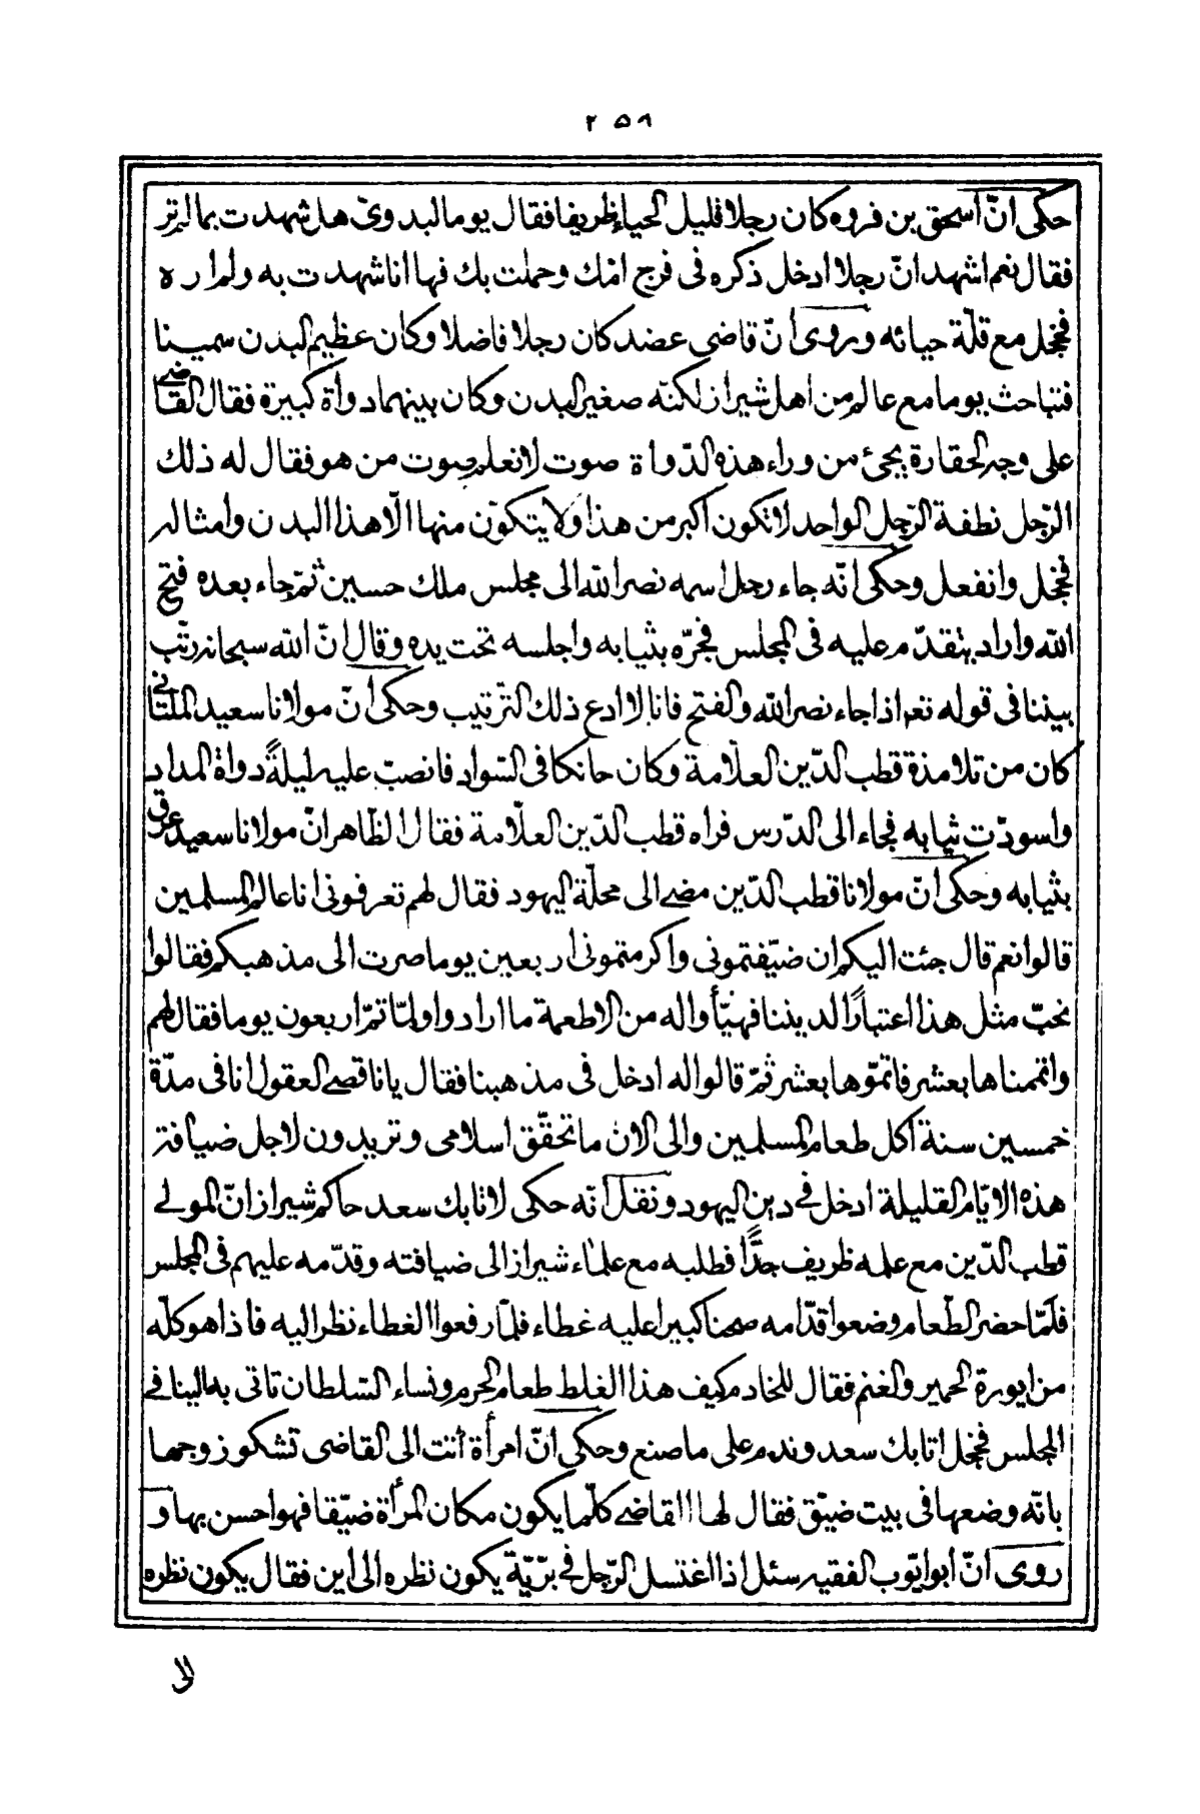 ٢٥٩
حكى انّ اسحق بن فروه كان رجلا قليل الحياء ظريفا فقال يوما لبدوىّ هل شهدت بما لم تر
فقال نعم اشهد انّ رجلا ادخل ذكره فى فرج امّك وحملت بك فها انا شهدت به ولم اره
فخجل مع قلّة حيائه وروى انّ قاضى عضد كان رجلا فاضلا وكان عظيم البدن سمينا
فتباحث يوما مع عالم من اهل شيراز لكنّه صغير البدن وكان بينهما دواة كبيرة فقال القاضى
على وجه الحقارة يجئ من وراء هذه الدّواة صوت لا نعلم صوت من هو فقال له ذلك
الرّجل نطفة الرّجل الواحد لا تكون اكبر من هذا ولا يتكوّن منها الّا هذا البدن وامثاله
فخجل وانفعل وحكى انّه جاء رجل اسمه نصر الله الى مجلس ملك حسين ثمّ جاء بعده فتح
الله واراد يتقدّم عليه فى المجلس فجرّه بثيابه واجلسه تحت يده وقال انّ الله سبحانه رتّب
بيننا فى قوله تعم اذا جاء نصر الله والفتح فانا لا ادع ذلك الترّتيب وحكى انّ مولانا سعيد الملتانى
كان من تلامذة قطب الدّين العلّامة وكان حانكا فى السّواد فانصبّ عليه ليلةً دواة المداد
واسودّت ثيابه فجاء الى الدّرس فراه قطب الدّين العلّامة فقال الظّاهر انّ مولانا سعيد عرق
بثيابه وحكى انّ مولانا قطب الدّين مضى الى محلّة اليهود فقال لهم تعرفونى انا عالم المسلمين
قالوا نعم قال جئت اليكم ان ضيّفتمونى واكرمتمونى اربعين يوما صرت الى مذهبكم فقالوا
نحبّ مثل هذا اعتبارًا لديننا فهيّأوا له من الاطعمة ما ارادوا ولمّا تمّ اربعون يوما فقال لهم
واتممناها بعشر فاتمّوها بعشر ثمّ قالوا له ادخل فى مذهبنا فقال يا ناقصى العقول انا فى مدّة
خمسين سنة آكل طعام المسلمين والى الان ما تحقّق اسلامى وتريدون لاجل ضيافة
هذه الايّام القليلة ادخل فى دين اليهود ونقل انّه حكى لاتابك سعد حاكم شيراز انّ المولى
قطب الدّين مع علمه ظريف جدًّا فطلبه مع علماء شيراز الى ضيافته وقدّمه عليهم فى المجلس
فلمّا حضر الطّعام وضعوا قدّامه صحنا كبيرا عليه غطاء فلمّا رفعوا الغطاء نظر اليه فاذا هو كلّه
من ايورة الحمير والغنم فقال للخادم كيف هذا الغلط طعام الحرم ونساء السّلطان تاتى به الينا فى
المجلس فخجل اتابك سعد وندم على ما صنع وحكى انّ امرأة أتت الى القاضى تشكو زوجها
بانّه وضعها فى بيت ضيّق فقال لها القاضى كلّما يكون مكان المرأة ضيّقا فهو احسن بها و
روى انّ ابو ايّوب الفقيه سئل اذا اغتسل الرّجل فى برّيّة يكون نظره الى اين فقال يكون نظره
الى